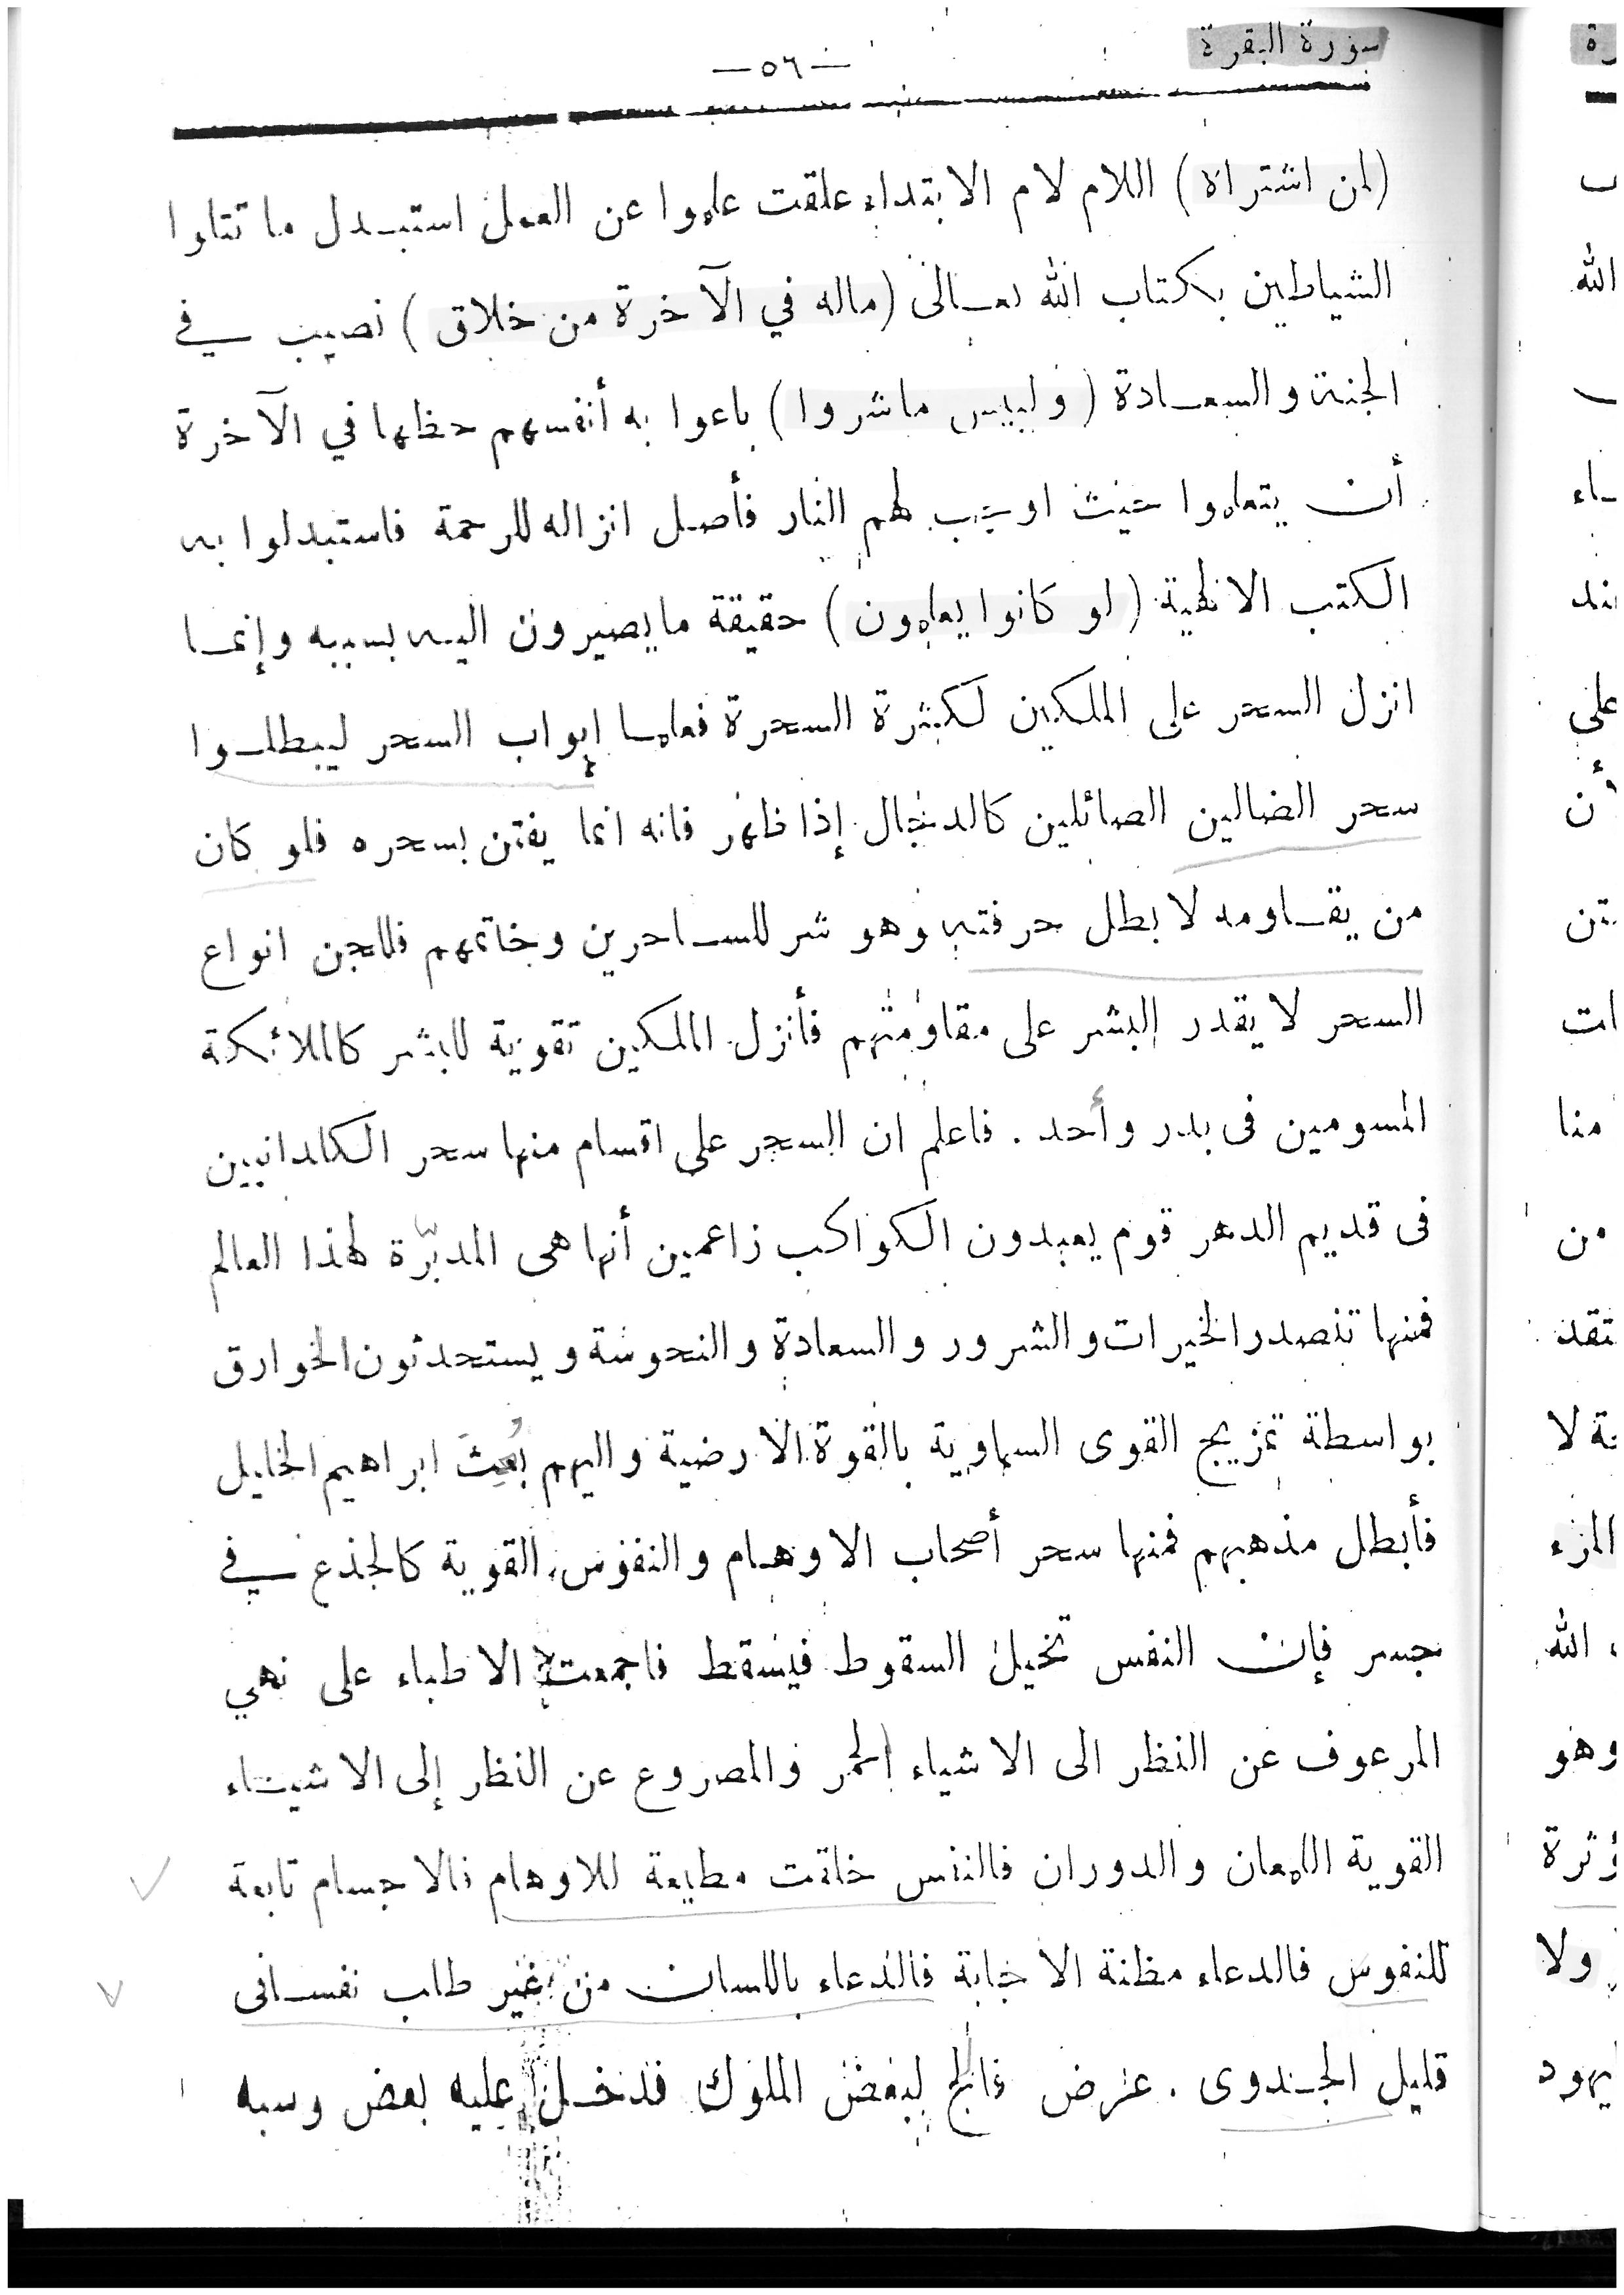 سورة البقرة
—٥٦—
(لمن اشتراه) اللام لام الابتداء علقت علموا عن العمل استبدل ما تتلوا
الشياطين بكتاب الله تعالى (ماله في الآخرة من خلاق) نصيب في
الجنة والسعادة (ولبيس ماشروا) باعوا به أنفسهم حظها في الآخرة
أن يتعلموا حيث اوجب لهم النار فأصل انزاله للرحمة فاستبدلوا به
الكتب الالهية (لو كانوا يعلمون) حقيقة ما يصيرون اليه بسببه وإنما
انزل السحر على الملكين لكثرة السحرة فعلما إبواب السحر ليبطلوا
سحر الضالين الصائلين كالدجال إذا ظهر فانه انما يفتن بسحره فلو كان
من يقاومه لا بطل حرفته وهو شر للساحرين وخاتمهم فللجن انواع
السحر لا يقدر البشر على مقاومتهم فأنزل الملكين تقوية للبشر كالملائكة
المسومين فى بدر وأحد . فاعلم ان السحر على اقسام منها سحر الكلدانيين
فى قديم الدهر قوم يعبدون الكواكب زاعمين أنها هى المدبّرة لهذا العالم
فمنها تنصدر الخيرات والشرور والسعادة والنحوسة ويستحدثون الخوارق
بواسطة تمزيج القوى السماوية بالقوة الارضية واليهم بُعِثَ ابراهيم الخليل
فأبطل مذهبهم فمنها سحر أصحاب الاوهام والنفوس القوية كالجذع في
جسر فإن النفس تخيل السقوط فيسقط فاجمعت الاطباء على نهي
المرعوف عن النظر الى الاشياء الحمر والمصروع عن النظر إلى الاشياء
القوية اللمعان والدوران فالنفس خلقت مطيعة للاوهام فالاجسام تابعة
للنفوس فالدعاء مظنة الاجابة فالدعاء باللسان من غير طلب نفسانى
قليل الجدوى . عرض فالج لبعض الملوك فدخل عليه بعض وسبه